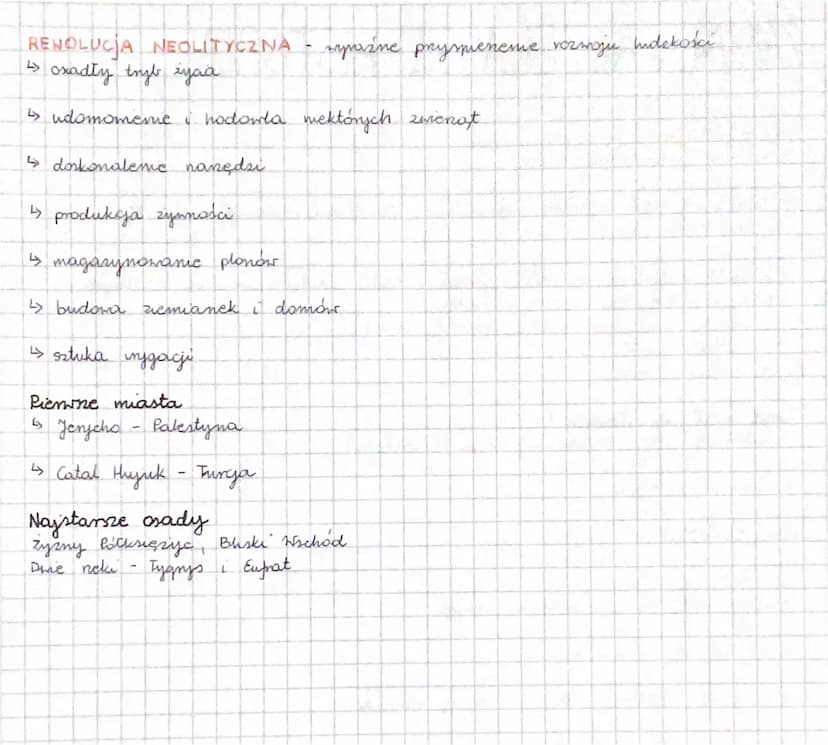 REWOLUCJA NEOLITYCZNA - wyraźne przyspieszenie rozwoju ludzkości
↳ osiadły tryb życia
↳ udomowienie i hodowla niektórych zwierząt
↳ doskonalenie narzędzi
↳ produkcja żywności
↳ magazynowanie plonów
↳ budowa ziemianek i domów
↳ sztuka irygacji
Pierwsze miasta
↳ Jerycho - Palestyna
↳ Catal Huyuk - Turcja
Najstarsze osady
Żyzny Półksiężyc, Bliski Wschód
Dwie rzeki - Tygrys i Eufrat